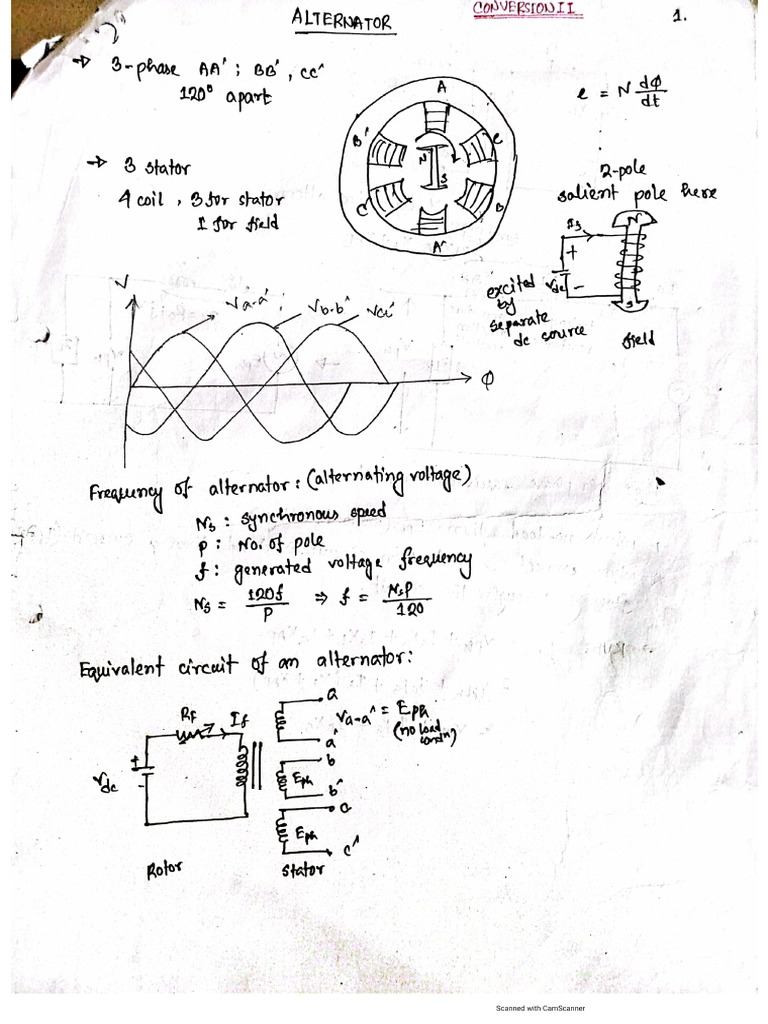 ALTERNATOR
CONVERSION II
1.
→ 3-phase AA'; BB', CC'
120° apart
e = N dφ/dt
→ 3 stator
4 coil, 3 for stator
1 for field
A
B'
C
N
S
C'
B
A'
2-pole
salient pole here
If
N
+
Vdc
-
S
excited
by
separate
dc source
field
V
Va-a'
Vb-b'
Vcc'
φ
Frequency of alternator: (alternating voltage)
Ns: synchronous speed
P: No. of pole
f: generated voltage frequency
Ns = 120f/P ⇒ f = NsP/120
Equivalent circuit of an alternator:
RF
If
+
Vdc
-
a
Va-a' = Eph
(no load
condn)
a'
b
Eph
b'
c
Eph
c'
Rotor
Stator
Scanned with CamScanner